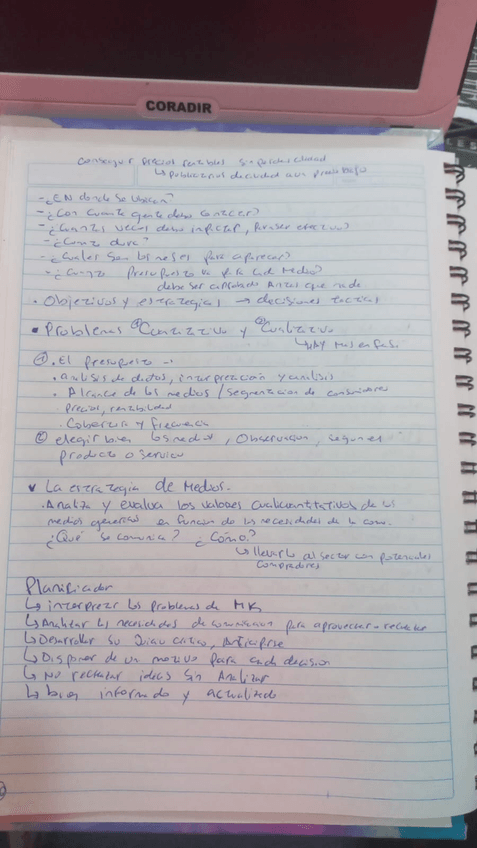 CORADIR
Conseguir precios rentables sin perder calidad
↳ publicarlos de calidad a un precio bajo
- ¿EN donde se ubican?
- ¿Con cuanta gente debe contacer?
- ¿Cuantas veces debe impactar, para ser efectivo?
- ¿Cuanto dura?
- ¿Cuales son los meses para aparecer?
- ¿Cuanto Presupuesto va para cada Medio?
debe ser aprobado Antes que nada
• Objetivos y estrategias → decisiones tacticas
• Problemas ① Cuantitativo y ② Cualitativo
↳ HAY Mas enfasis
① . El presupuesto →
• analisis de datos, interpretación y analisis
• Alcance de los medios / segmentacion de consumidores
precios, rentabilidad
. Cobertura y frecuencia
② elegir bien los medios, Observacion, segun es
producto o servicio
v La estrategia de Medios.
. Analiza y evalua los valores cualicuantitativos de los
medios en funcion de las necesidades de la com.
¿Qué se comunica? ¿Cómo?
↳ llevarlo al sector con potenciales
compradores
Planificador
↳ interpretar los problemas de MK
↳ Analizar las necesidades de comunicacion para aprovechar o rechazar
↳ Desarrollar su Juicio critico, Anticiparse
↳ Disponer de un motivo para cada decision
↳ No rechazar ideas sin Analizar
↳ bien informado y actualizado